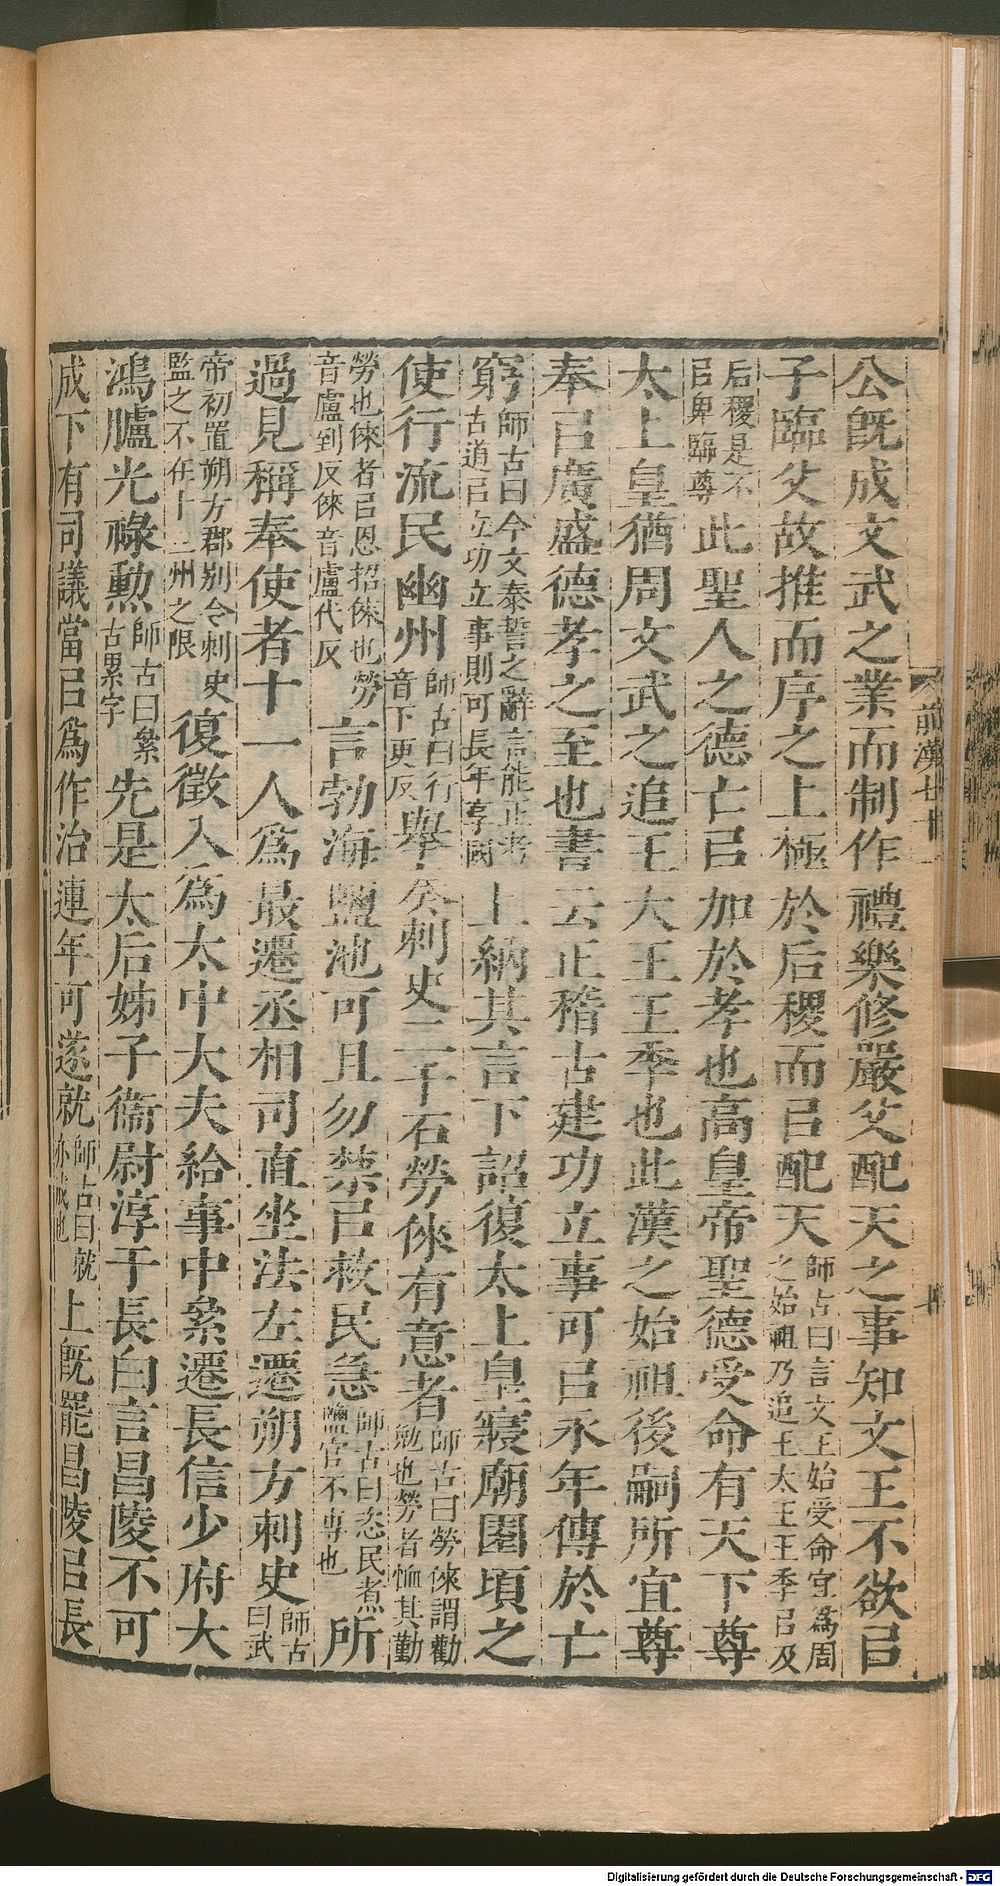 公旣成文武之業而制作禮樂修嚴父配天之事知文王不欲㠯
子臨父故推而序之上極於后稷而㠯配天師古曰言文王始受命宜爲周之始祖乃追王太王王季㠯及
后稷是不㠯卑臨尊此聖人之德亡㠯加於孝也高皇帝聖德受命有天下尊
太上皇猶周文武之追王大王王季也此漢之始祖後嗣所宜尊
奉㠯廣盛德孝之至也書云正稽古建功立事可㠯永年傳於亡
窮師古曰今文泰誓之辭言能正考古道㠯立功立事則可長年享國上納其言下詔復太上皇寢廟園頃之
使行流民幽州師古曰行音下更反舉奏刺史二千石勞倈有意者師古曰勞倈謂勸勉也勞者恤其勤
勞也倈者㠯恩招倈也勞音盧到反倈音盧代反言勃海鹽池可且勿禁㠯救民急師古曰恣民煮鹽官不專也所
過見稱奉使者十一人爲最遷丞相司直坐法左遷朔方刺史師古曰武
帝初置朔方郡别令刺史監之不在十三州之限復徵入爲太中大夫給事中絫遷長信少府大
鴻臚光祿勲師古曰絫古累字先是太后姊子衞尉淳于長白言昌陵不可
成下有司議當㠯爲作治連年可遂就師古曰就亦成也上旣罷昌陵㠯長
前漢七十一
Digitalisierung gefördert durch die Deutsche Forschungsgemeinschaft - DFG